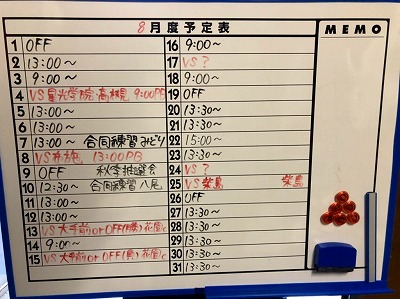 8月度予定表
MEMO
1 OFF
2 13:00～
3 9:00～
4 VS 星光学院・高槻北 9:00PB
5 13:00～
6 13:00～
7 13:00～ 合同練習みどり
8 VS 布施 13:00PB
9 OFF 秋季抽選会
10 12:30～ 合同練習 八尾
11 13:00～
12 13:00～
13 VS 大手前 or OFF(勝) 花園
14 9:00～
15 VS 大手前 or OFF(負) 花園
16 9:00～
17 VS ?
18 9:00～
19 OFF
20 13:30～
21 13:30～
22 15:00～
23 13:30～
24 VS ?
25 VS 柴島 柴島
26 OFF
27 13:30～
28 13:30～
29 13:30～
30 13:30～
31 13:30～